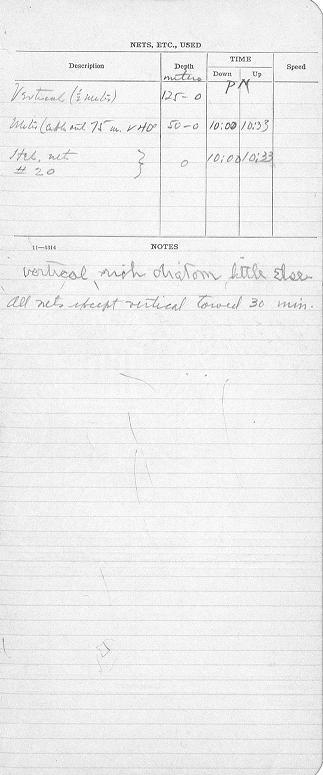 NETS, ETC., USED
Description Depth TIME Speed
meters Down Up
PM
Vertical (½ meter) 125-0
Meter (cable out 75 m. √40° 50-0 10:00 10:33
Hel. net } 0 10:00 10:33
# 20
11—5314 NOTES
vertical, rich diatom, little else
All nets except vertical towed 30 min.